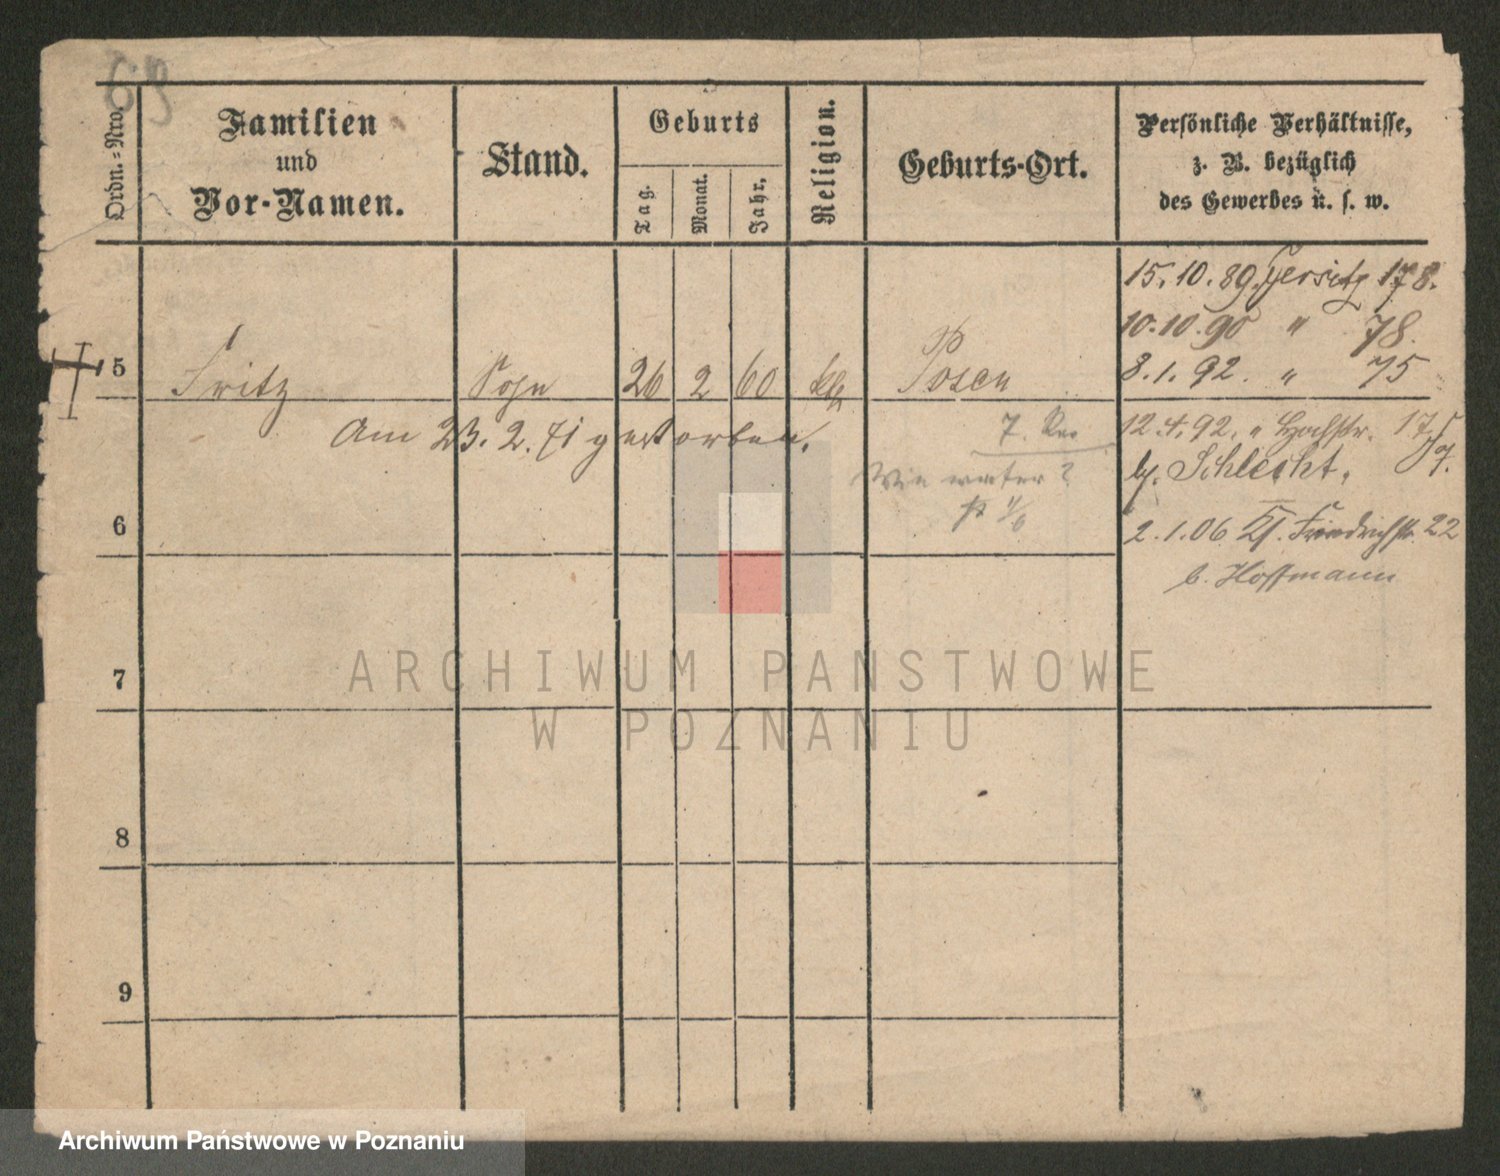 69
Ordn.-Nro.
Familien
und
Vor-Namen.
Stand.
Geburts
Tag.
Monat.
Jahr.
Religion.
Geburts-Ort.
Persönliche Verhältnisse,
z. B. bezüglich
des Gewerbes u. s. w.
15.10.89. Jersitz 178.
10.10.90 " 78.
5 Fritz Sohn 26 2 60 kth Posen
8.1.92. " 75
Am 23.2.71 gestorben.
12.4.92. " Hochstr. 17
b. Schlecht.
Wie weiter?
6
2.1.06 Kl. Friedrichstr. 22
b. Hoffmann
7
8
9
ARCHIWUM PAŃSTWOWE
W POZNANIU
Archiwum Państwowe w Poznaniu